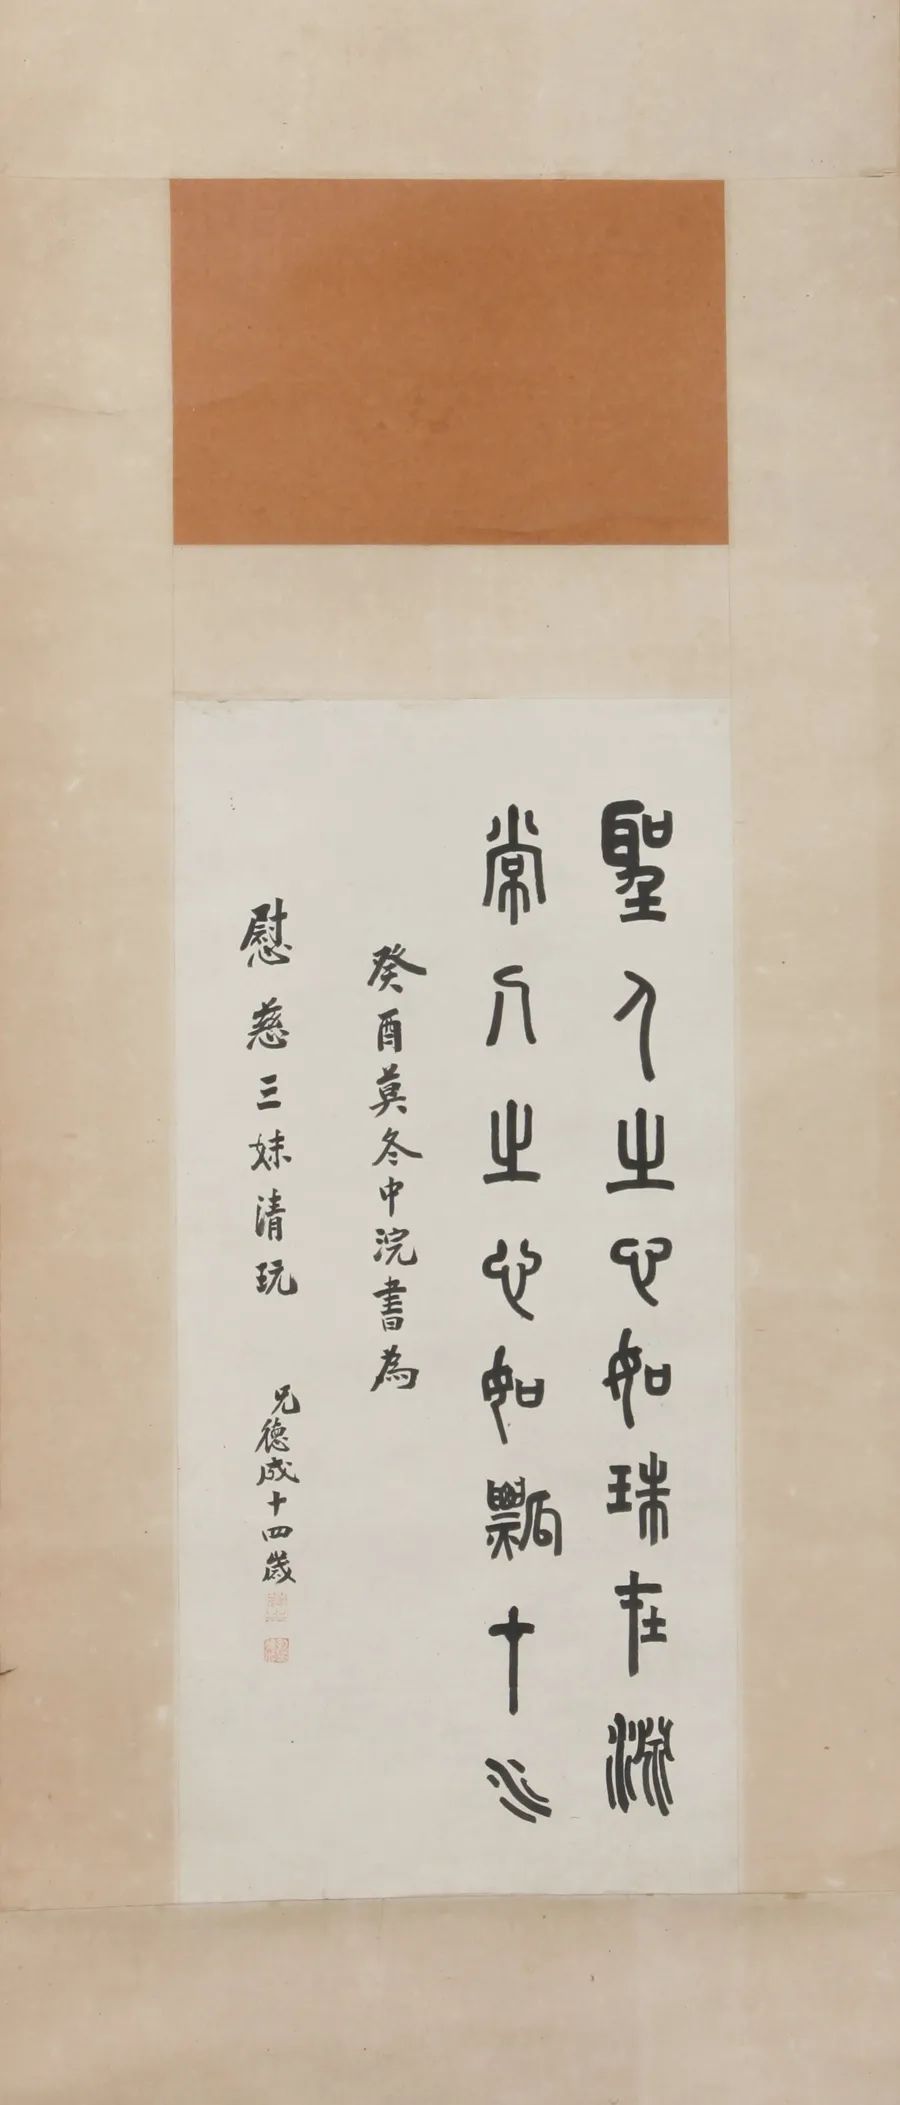 聖人之心如珠在淵
常人之心如瓢在水
癸酉莫冬中浣書為
慰慈三妹清玩
兄德成十四歲